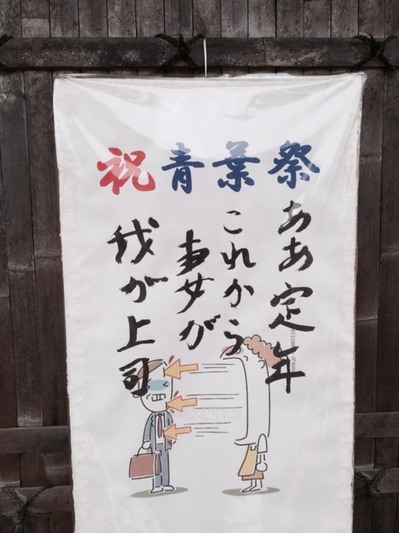 祝青葉祭
ああ定年
これから
妻が
我が上司